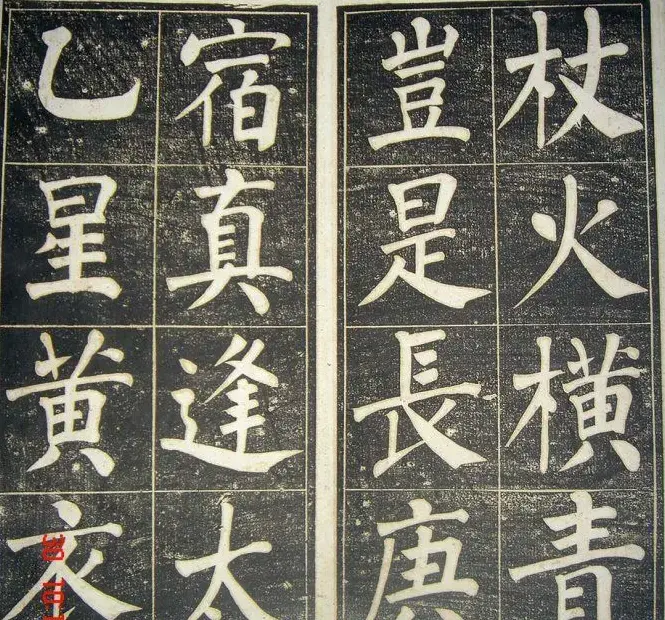 杖火横青
豈是長庚
宿真逢太
乙星黄衣